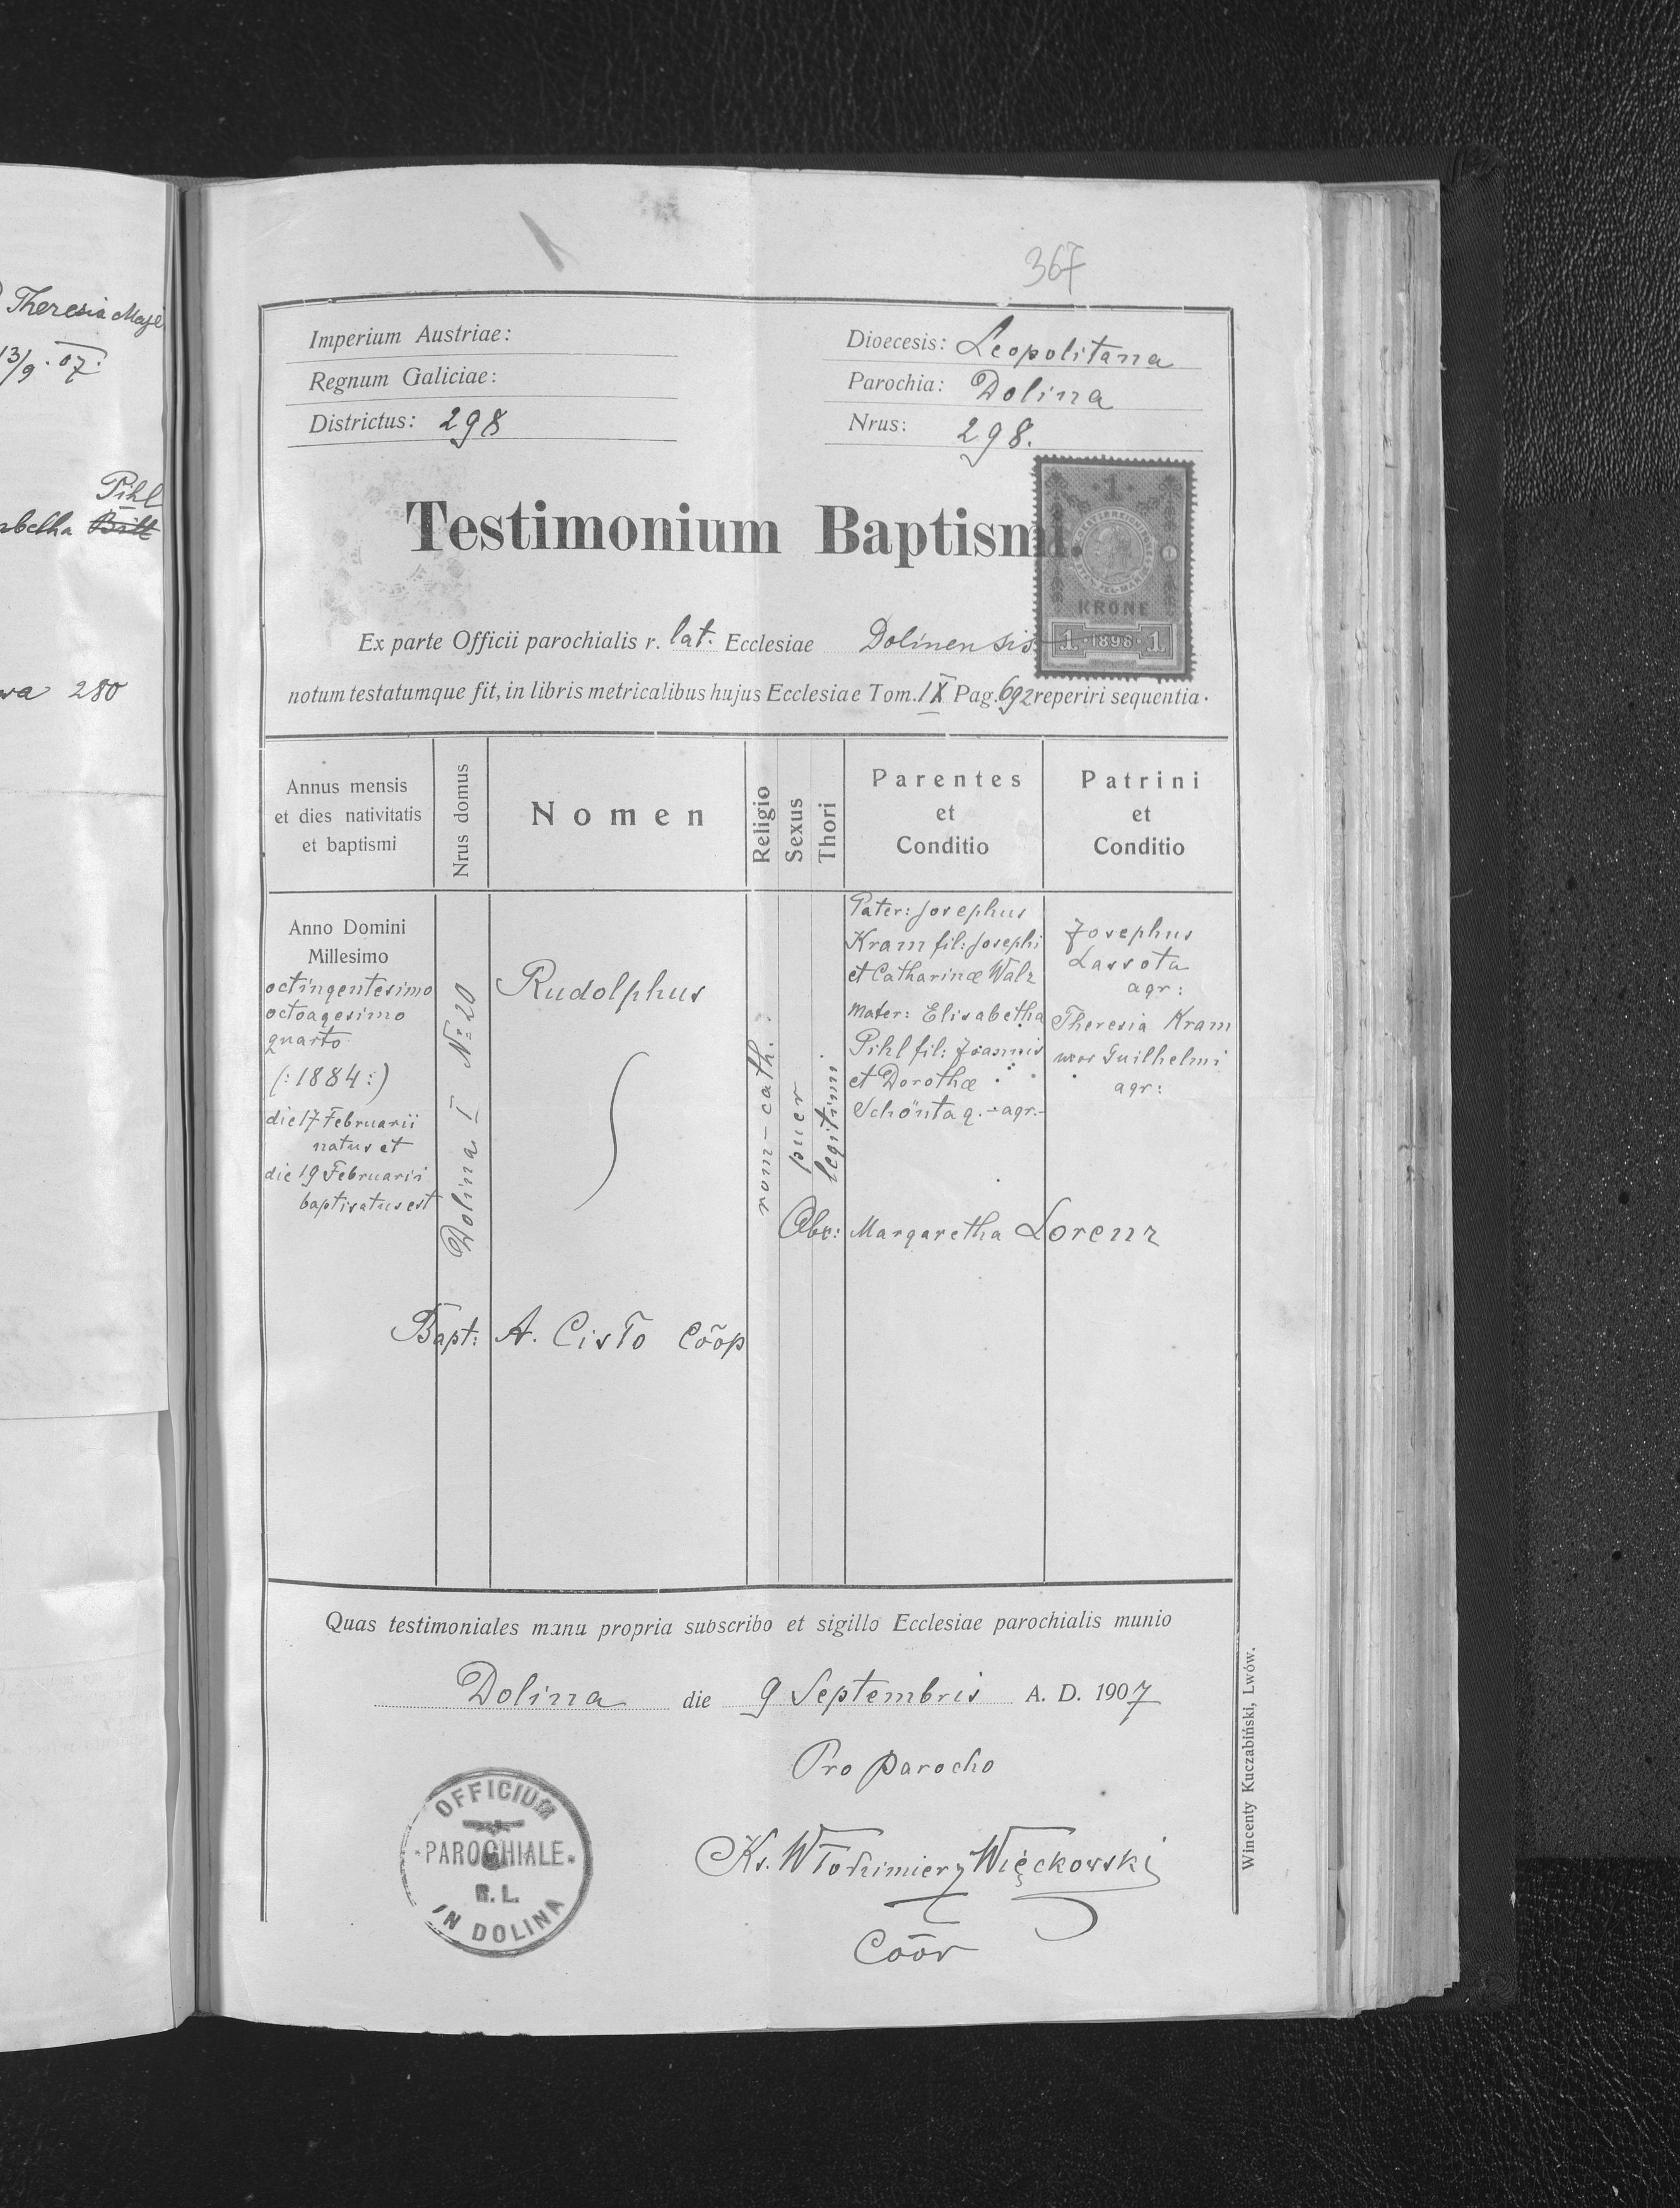 Theresia
13/9. 07.
Pihl
Britt
280
367
Imperium Austriae:
Regnum Galiciae:
Districtus: 298
Dioecesis: Leopolitana
Parochia: Dolina
Nrus: 298.
Testimonium Baptismi.
1
KRONE
1 · 1898 · 1
Ex parte Officii parochialis r. lat. Ecclesiae Dolinensis
notum testatumque fit, in libris metricalibus hujus Ecclesiae Tom. IX Pag. 692 reperiri sequentia.
Annus mensis
et dies nativitatis
et baptismi
Nrus domus
Nomen
Religio
Sexus
Thori
Parentes
et
Conditio
Patrini
et
Conditio
Anno Domini
Millesimo
octingentesimo
octoagesimo
quarto
(:1884:)
die 17 Februarii
natus et
die 19 Februarii
baptisatus est
Dolina I No 20
Rudolphus
rom-cath.
puer
legitimi.
Pater: Josephus
Kram fil: Josephi
et Catharinæ Walz
Mater: Elisabetha
Pihl fil: Joannis
et Dorothæ
Schöntag. - agr.-
Josephus
Lassota
agr:
Theresia Kram
uxor Guilhelmi
agr:
Obs: Margaretha Lorenz
Bapt: A. Cisło Coop
Quas testimoniales manu propria subscribo et sigillo Ecclesiae parochialis munio
Dolina die 9 Septembris A. D. 1907
Pro parocho
Ks. Włodzimierz Więckowski
Coop
OFFICIUM
PAROCHIALE
R. L.
IN DOLINA
Wincenty Kuczabiński, Lwów.